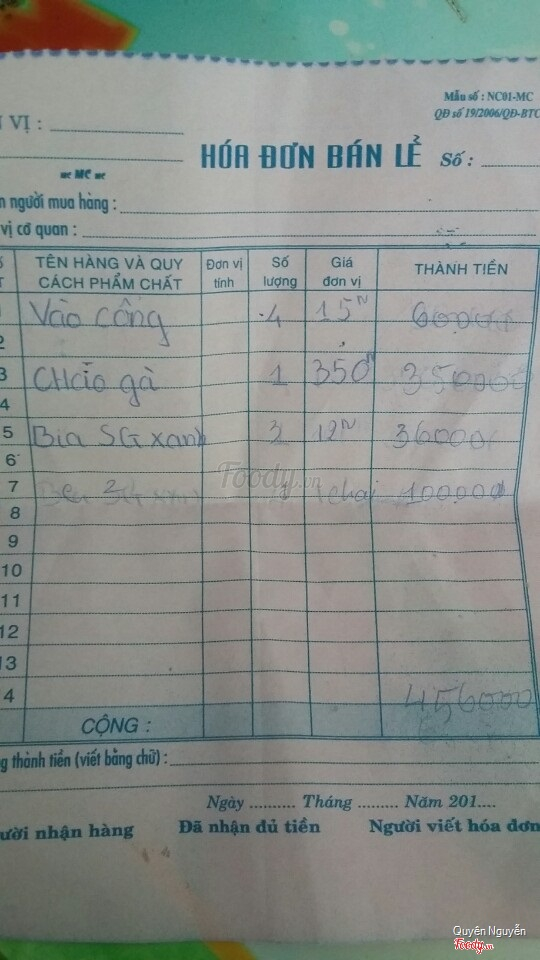 Mẫu số : NC01-MC
QĐ số 19/2006/QĐ-BTC
VỊ :
HÓA ĐƠN BÁN LẺ Số :
MC
n người mua hàng :
vị cơ quan :
TÊN HÀNG VÀ QUY CÁCH PHẨM CHẤT Đơn vị tính Số lượng Giá đơn vị THÀNH TIỀN
Vào cổng 4 15N 60000
2
3 CHáo gà 1 350N 350000
4
5 Bia SG xanh 3 12N 36000
6
Foody.vn
7 SG chai 100000
8
9
10
11
12
13
4 456000
CỘNG :
g thành tiền (viết bằng chữ) :
Ngày .......... Tháng ......... Năm 201....
ười nhận hàng Đã nhận đủ tiền Người viết hóa đơn
Quyên Nguyễn
Foody.vn